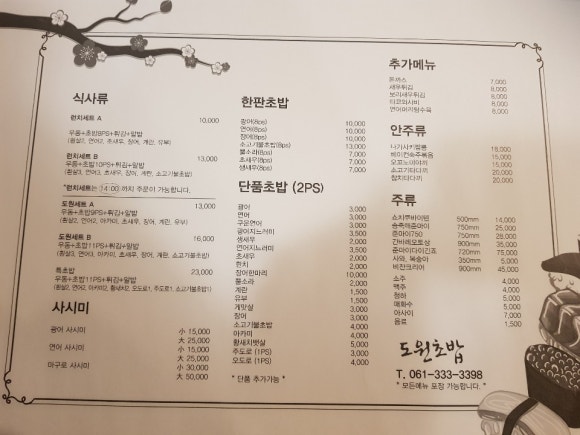 식사류
런치세트 A 10,000
우동+초밥8PS+튀김+알밥
(흰살2, 연어2, 초새우, 장어, 계란, 유부)
런치세트 B 13,000
우동+초밥10PS+튀김+알밥
(흰살3, 연어3, 초새우, 장어, 계란, 소고기불초밥)
*런치세트는 14:00 까지 주문이 가능합니다.
도원세트 A 13,000
우동+초밥9PS+튀김+알밥
(흰살2, 연어2, 아카미, 초새우, 장어, 계란, 유부)
도원세트 B 16,000
우동+초밥11PS+튀김+알밥
(흰살3, 연어3, 아카미, 초새우, 장어, 계란, 소고기불초밥)
특초밥 23,000
우동+초밥11PS+튀김+알밥
사시미
광어 사시미 小 15,000
大 25,000
연어 사시미 小 15,000
大 25,000
마구로 사시미 小 30,000
大 50,000
한판초밥
광어(8ps) 10,000
연어(8ps) 10,000
장어(8ps) 10,000
소고기불초밥(8ps) 13,000
뿔소라(8ps) 7,000
초새우(8ps) 7,000
생새우(8ps) 7,000
단품초밥 (2PS)
광어 3,000
연어 3,000
구운연어 3,000
광어지느러미 3,500
생새우 3,000
연어지느러미 3,500
초새우 2,000
한치 2,000
장어한마리 10,000
뿔소라 2,000
계란 1,500
유부 1,500
게맛살 1,500
장어 3,000
소고기불초밥 4,000
아카미 4,000
황새치뱃살 5,000
주도로 (1PS) 3,000
오도로 (1PS) 4,000
* 단품 추가가능 *
추가메뉴
돈까스 7,000
새우튀김 6,000
보리새우튀김 8,000
타코와사비 6,000
연어머리탕수육 8,000
안주류
나가사키짬뽕 18,000
해미연숙주볶음 15,000
오꼬노미야끼 15,000
소고기타다끼 20,000
참치타다끼 20,000
주류
쇼치쿠바이텐 500mm 14,000
송죽매준마이 750mm 25,000
준마이750 750mm 28,000
간바레오또상 900mm 35,000
준마이다이긴죠 720mm 75,000
사와, 복숭아 350mm 5,000
비잔코리어 900mm 45,000
소주 4,000
맥주 4,000
청하 5,000
매화수 5,000
아사이 7,000
음료 1,500
도원초밥
T. 061-333-3398
* 모든메뉴 포장 가능합니다. *